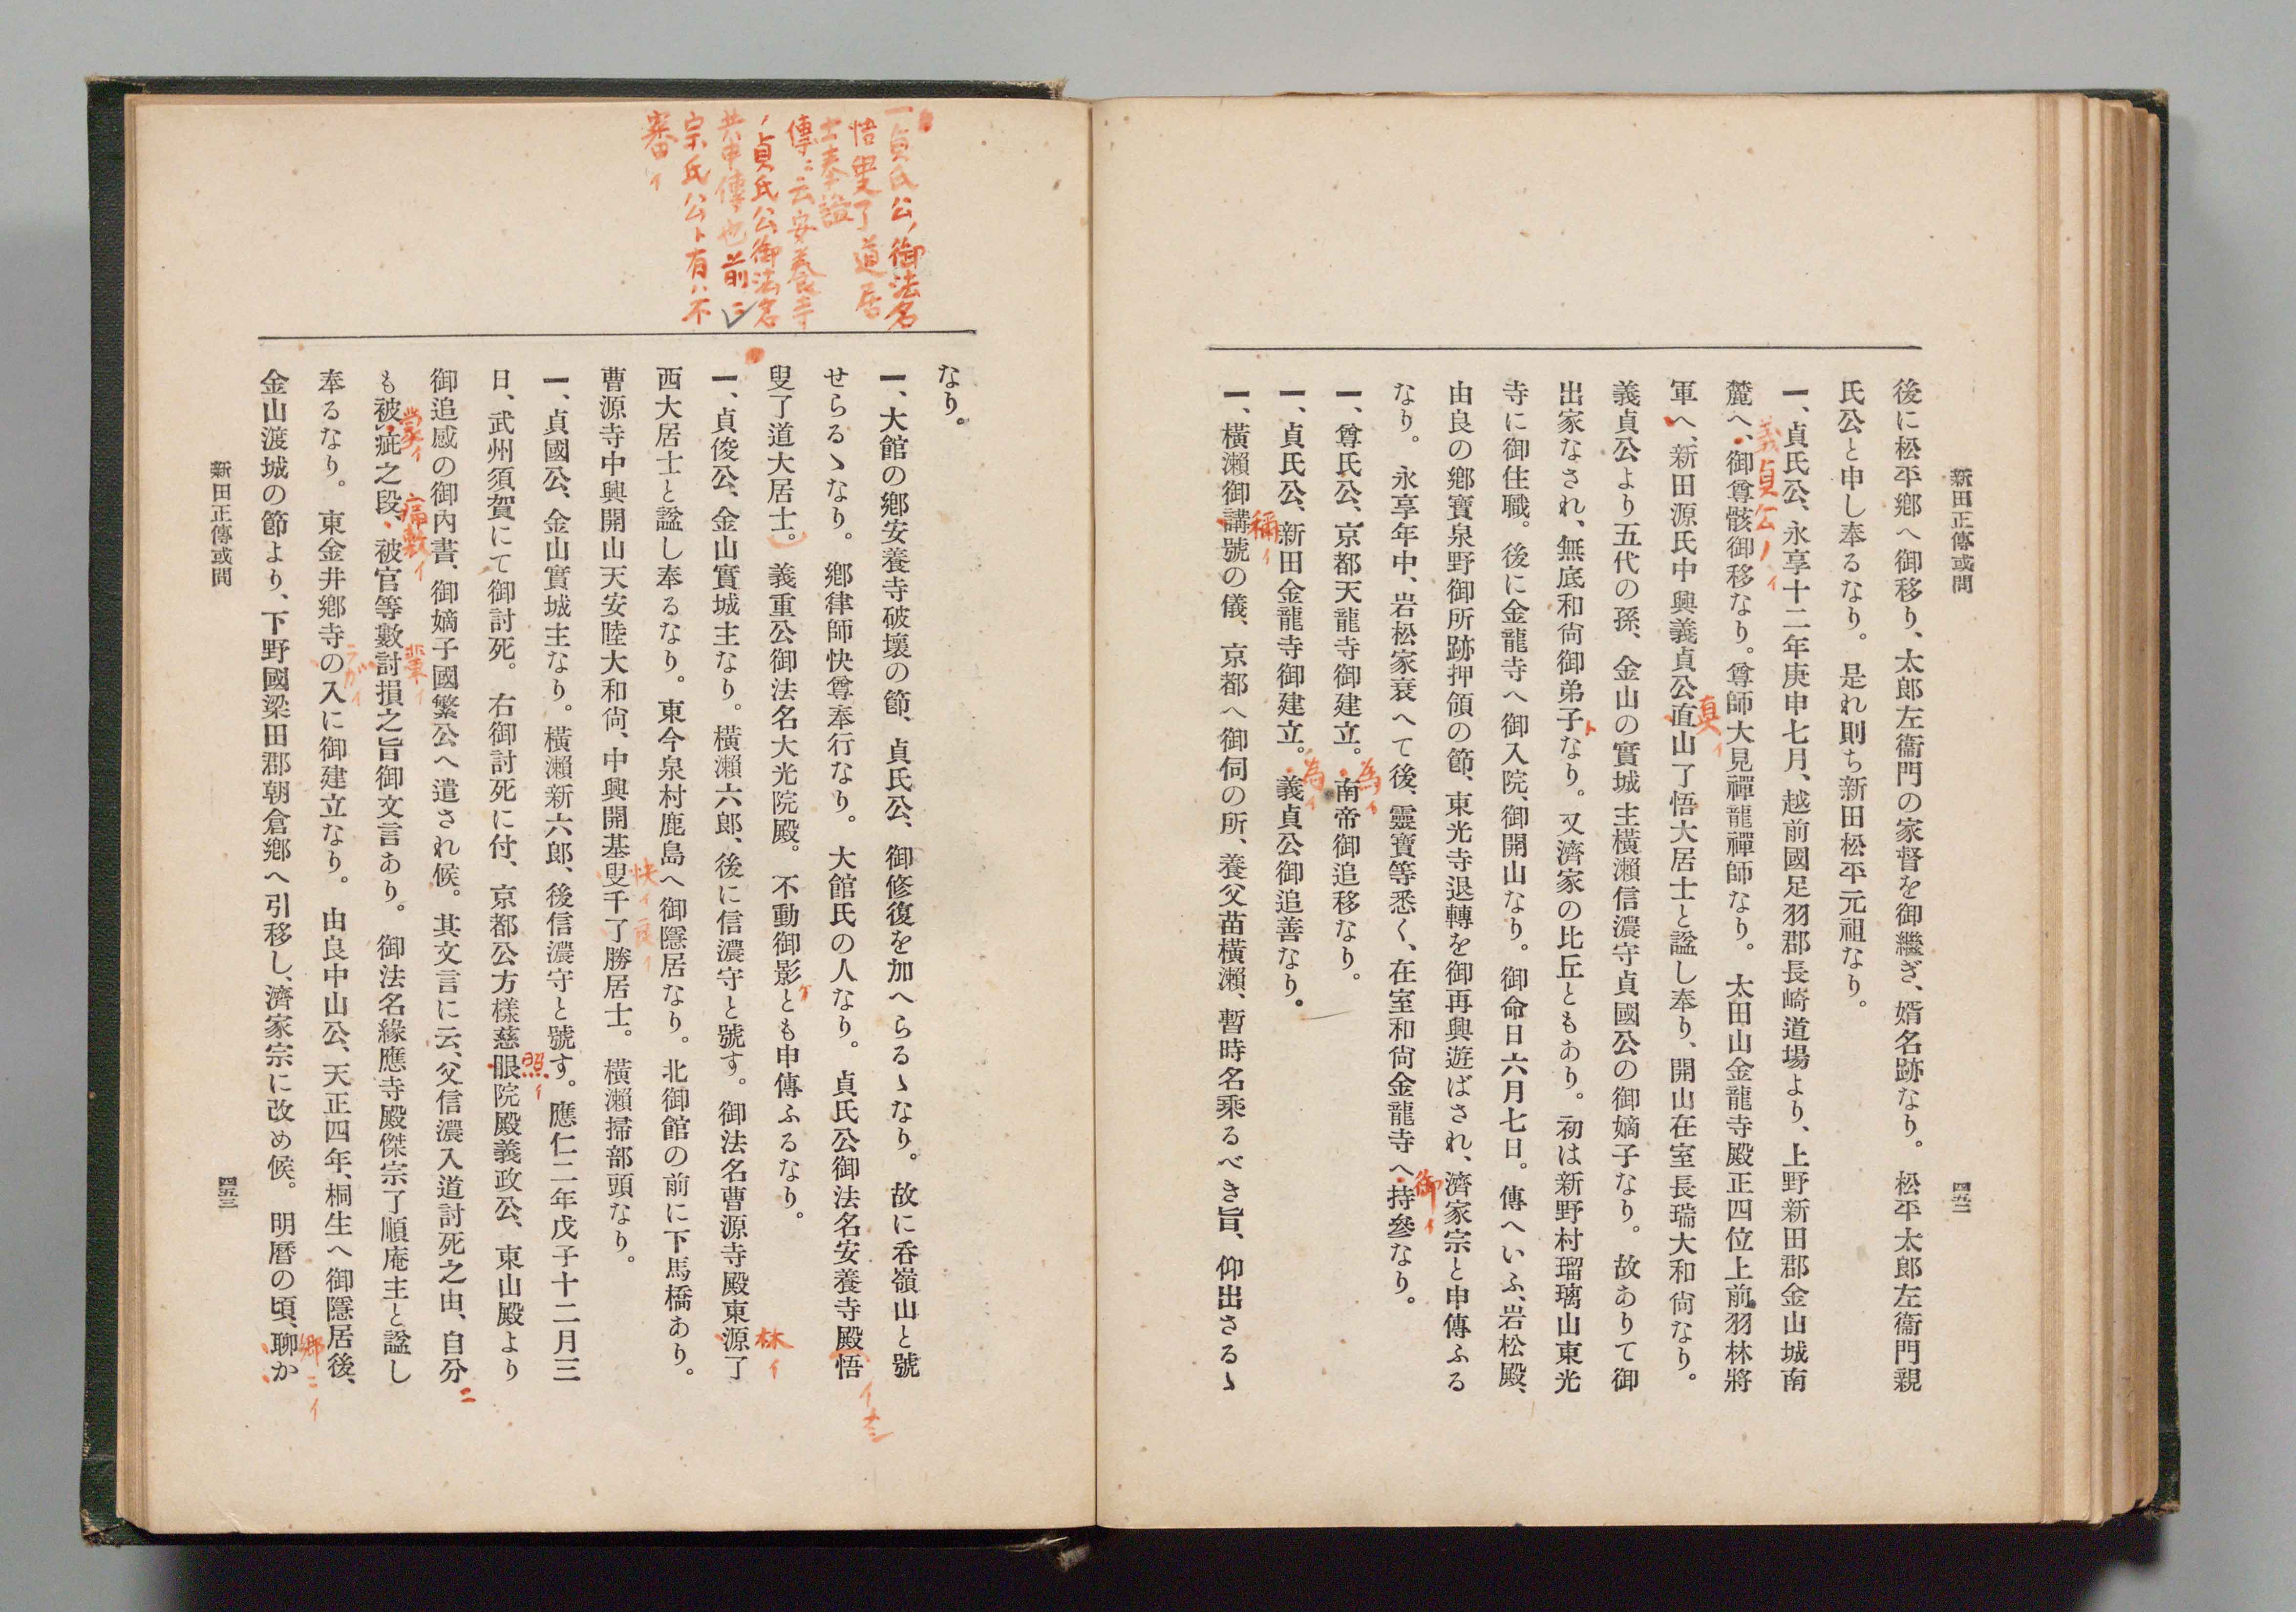 新田正傳或問
四五二
後に松平鄕へ御移り、太郎左衞門の家督を御繼ぎ、婿名跡なり。松平太郎左衞門親
氏公と申し奉るなり。是れ則ち新田松平元祖なり。
一、貞氏公、永享十二年庚申七月、越前國足羽郡長崎道場より、上野新田郡金山城南
義貞公ノイ
麓へ、御尊骸御移なり。尊師大見禪龍禪師なり。太田山金龍寺殿正四位上前羽林將
軍へ、新田源氏中興義貞公直山了悟大居士と諡し奉り、開山在室長瑞大和尙なり。
眞イ
義貞公より五代の孫、金山の實城主橫瀨信濃守貞國公の御嫡子なり。故ありて御
出家なされ、無底和尙御弟子なり。又濟家の比丘ともあり。初は新野村瑠璃山東光
ト
寺に御住職。後に金龍寺へ御入院、御開山なり。御命日六月七日。傳へいふ、岩松殿、
由良の鄕寶泉野御所跡押領の節、東光寺退轉を御再興遊ばされ、濟家宗と申傳ふる
なり。永享年中、岩松家衰へて後、靈寶等悉く、在室和尙金龍寺へ持參なり。
御イ
一、尊氏公、京都天龍寺御建立。南帝御追移なり。
為イ
一、貞氏公、新田金龍寺御建立。義貞公御追善なり。
為イ
一、橫瀨御講號の儀、京都へ御伺の所、養父苗橫瀨、暫時名乘るべき旨、仰出さるゝ
稱イ
一貞氏公ノ御法名
悟叟了道居
士奉諡
傳ニ云安養寺
ノ貞氏公御法名
共申傳也前ニ
宗氏公ト有ハ不
審イ
なり。
一、大館の鄕安養寺破壞の節、貞氏公、御修復を加へらるゝなり。故に呑嶺山と號
せらるゝなり。鄕律師快尊奉行なり。大館氏の人なり。貞氏公御法名安養寺殿悟
叟了道大居士。義重公御法名大光院殿。不動御影とも申傳ふるなり。
一、貞俊公、金山實城主なり。橫瀨六郎、後に信濃守と號す。御法名曹源寺殿東源了
林イ
西大居士と諡し奉るなり。東今泉村鹿島へ御隱居なり。北御館の前に下馬橋あり。
曹源寺中興開山天安陸大和尙、中興開基叟千了勝居士。橫瀨掃部頭なり。
快イ
一、貞國公、金山實城主なり。橫瀨新六郎、後信濃守と號す。應仁二年戊子十二月三
日、武州須賀にて御討死。右御討死に付、京都公方樣慈眼院殿義政公、東山殿より
照イ
御追感の御內書、御嫡子國繁公へ遣され候。其文言に云、父信濃入道討死之由、自分
ニ
も被疵之段、被官等數討損之旨御文言あり。御法名緣應寺殿傑宗了順庵主と諡し
痛數イ
輩イ
奉るなり。東金井鄕寺の入に御建立なり。由良中山公、天正四年、桐生へ御隱居後、
金山渡城の節より、下野國梁田郡朝倉鄕へ引移し、濟家宗に改め候。明曆の頃、聊か
鄕ニイ
新田正傳或問
四五三